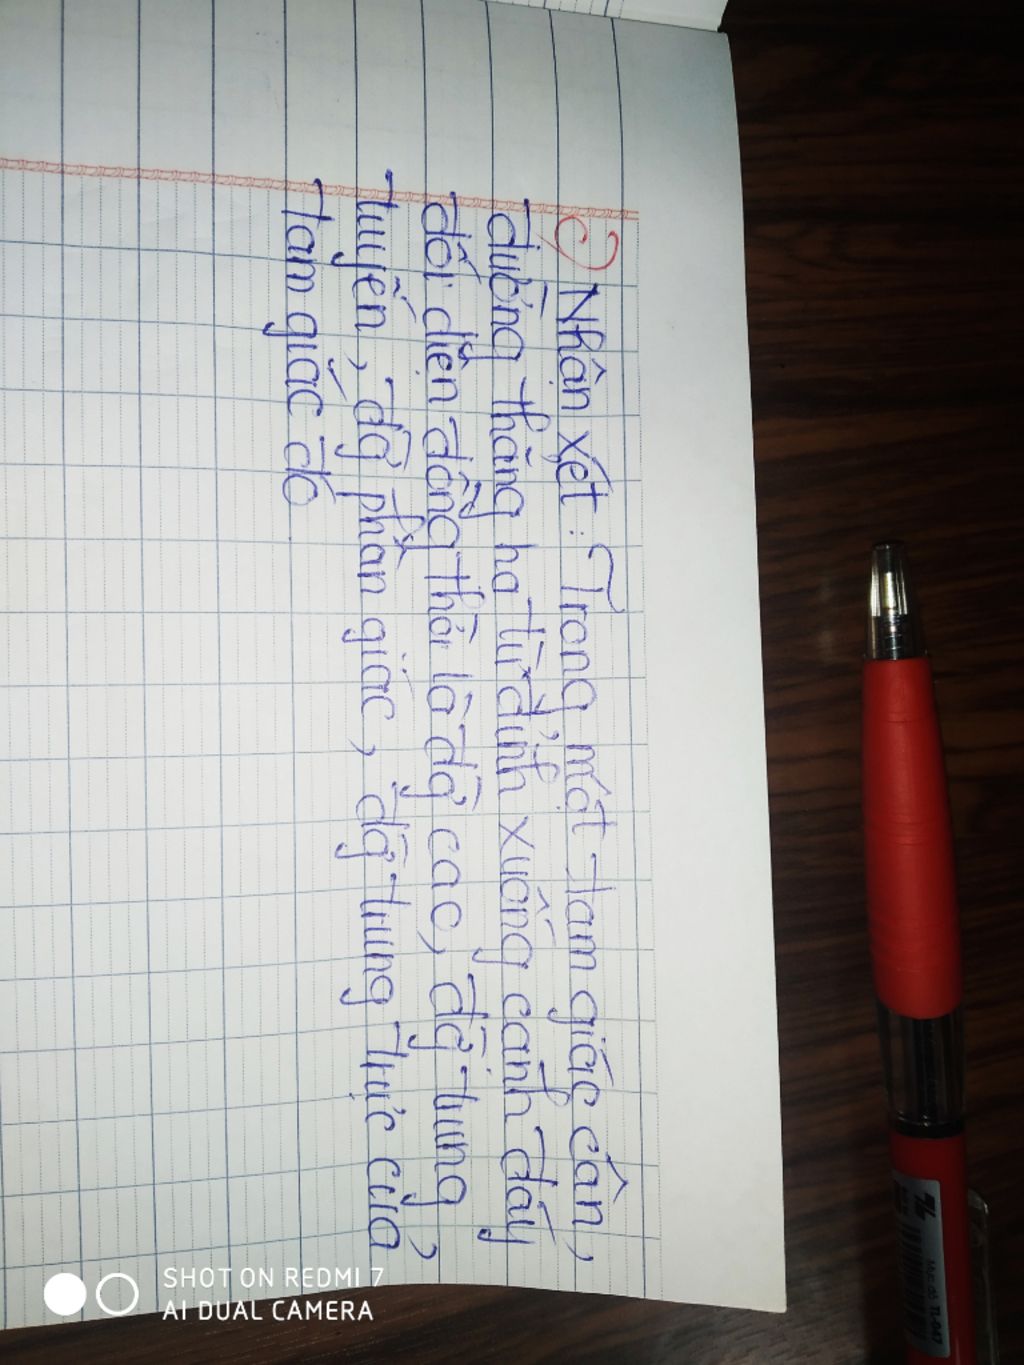 ? Nhận xét: Trong một tam giác cân,
đường thẳng hạ từ đỉnh xuống cạnh đáy
đối diện đồng thời là đg cao, đg trung
tuyến, đg phân giác, đg trung trực của
tam giác đó
SHOT ON REDMI 7
AI DUAL CAMERA
TL-047